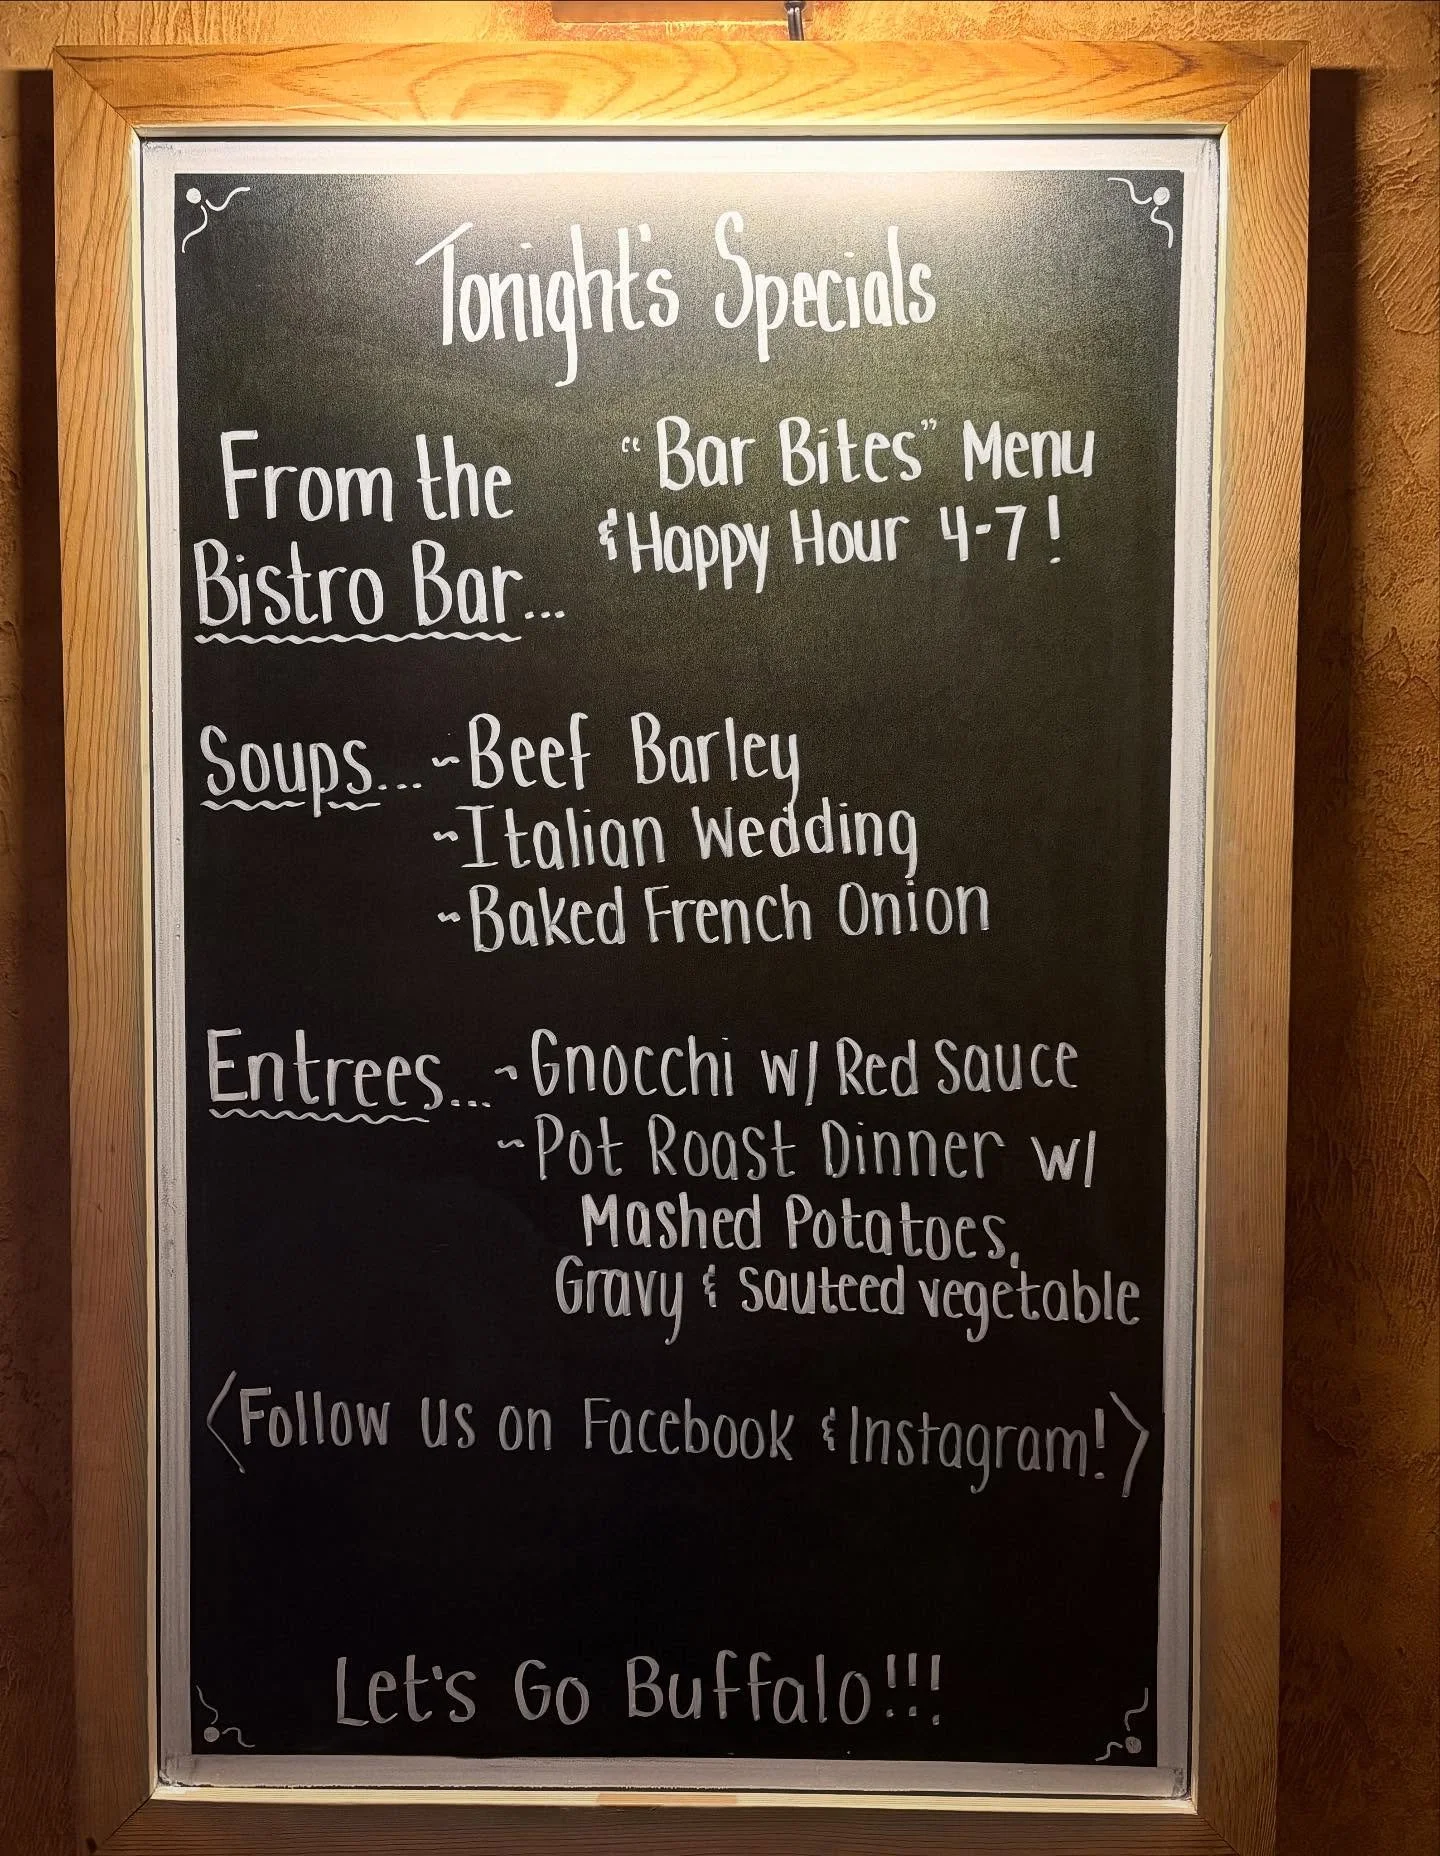 Tonight's Specials
From the
Bistro Bar...
"Bar Bites" Menu
& Happy Hour 4-7!
Soups... ~Beef Barley
~Italian Wedding
~Baked French Onion
Entrees... ~Gnocchi w/ Red Sauce
~Pot Roast Dinner w/
Mashed Potatoes,
Gravy & Sauteed vegetable
<Follow us on Facebook & Instagram!>
Let's Go Buffalo!!!